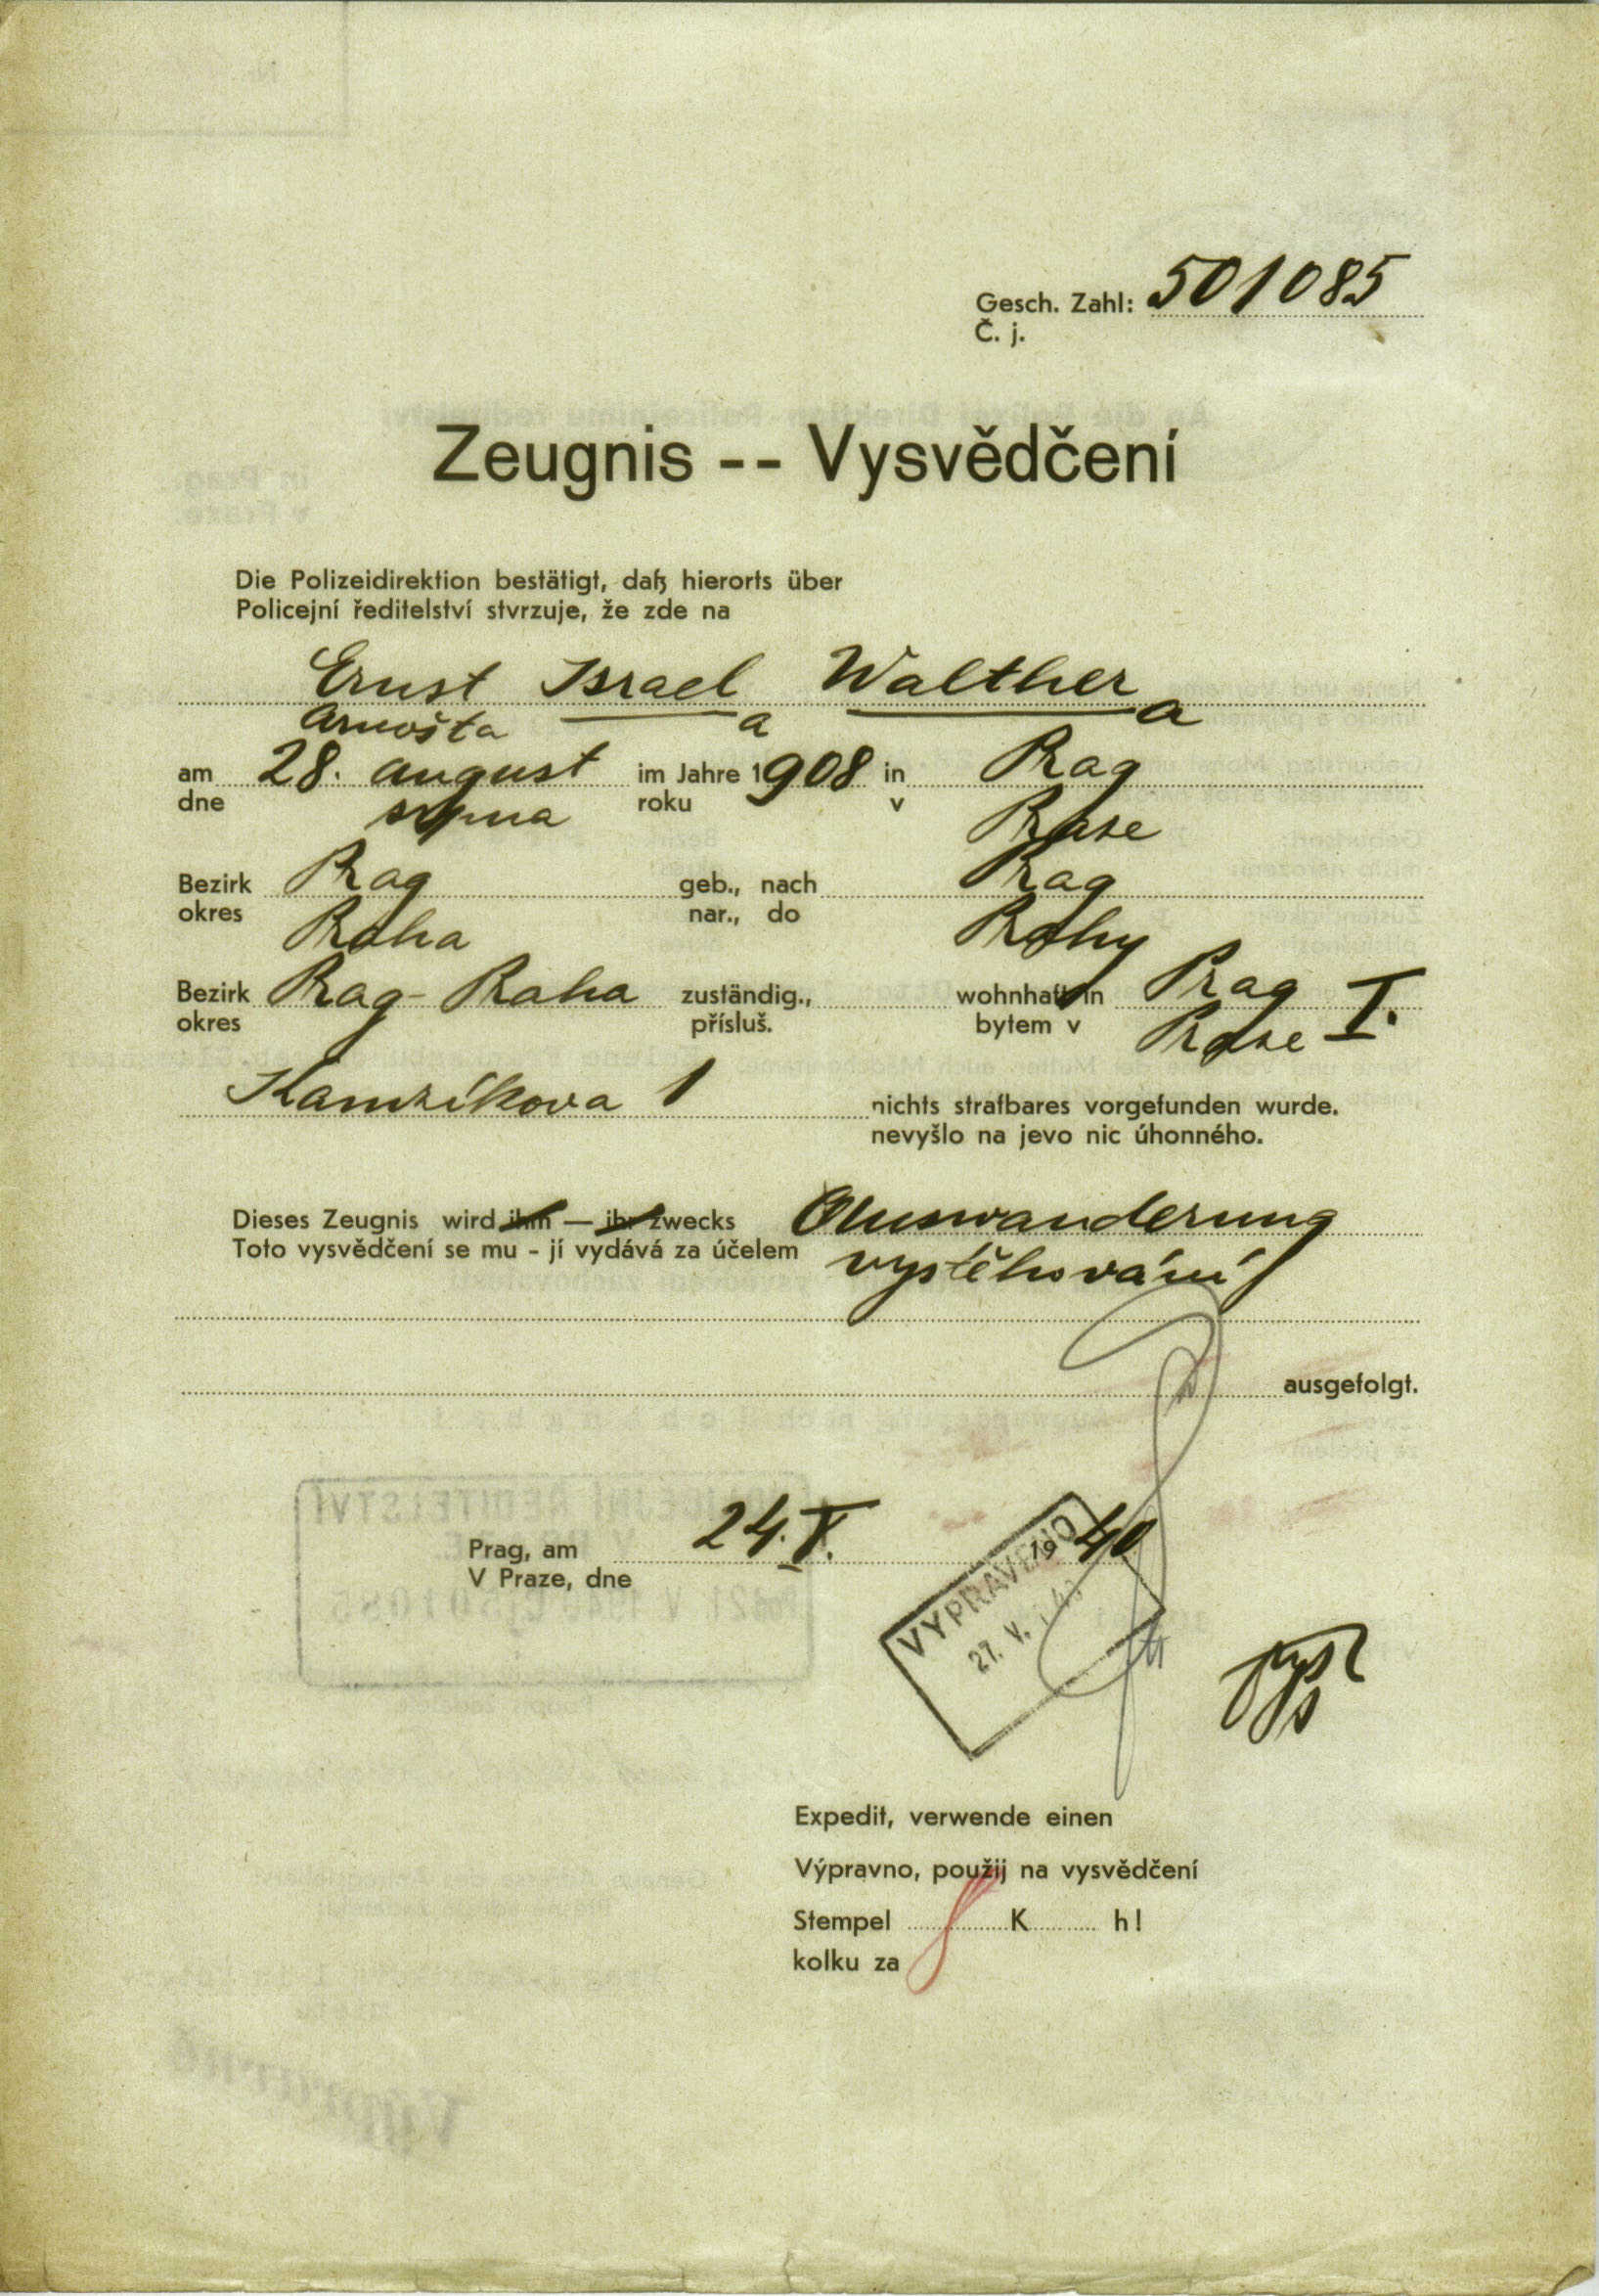 Gesch. Zahl: 501085
Č. j.
Zeugnis -- Vysvědčení
Die Polizeidirektion bestätigt, daß hierorts über
Policejní ředitelství stvrzuje, že zde na
Ernst Israel Walther
Arnošta a a
am 28. august im Jahre 1908 in Prag
dne srpna roku v Praze
Bezirk Prag geb., nach Prag
okres Praha nar., do Prahy
Bezirk Prag - Praha zuständig., wohnhaft in Prag I.
okres přísluš. bytem v Praze
Kamzíkova 1 nichts strafbares vorgefunden wurde.
nevyšlo na jevo nic úhonného.
Dieses Zeugnis wird ihm — ihr zwecks Auswanderung
Toto vysvědčení se mu - jí vydává za účelem vystěhování
ausgefolgt.
Prag, am 24. V. 1940
V Praze, dne
VYPRAVENO
27. V. 40
Expedit, verwende einen
Výpravno, použij na vysvědčení
Stempel K h!
kolku za